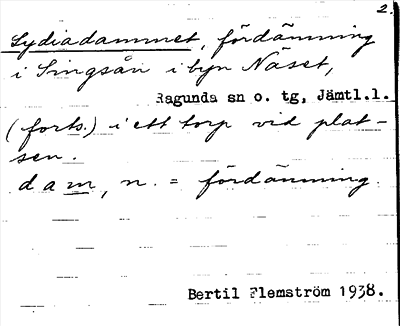 2.
Lydiadammet, fördämning
i Singsån i byn Näset,
Ragunda sn o. tg, Jämtl.l.
(forts.) i ett torp vid plat-
sen.
dam, n. = fördämning.
Bertil Flemström 1938.